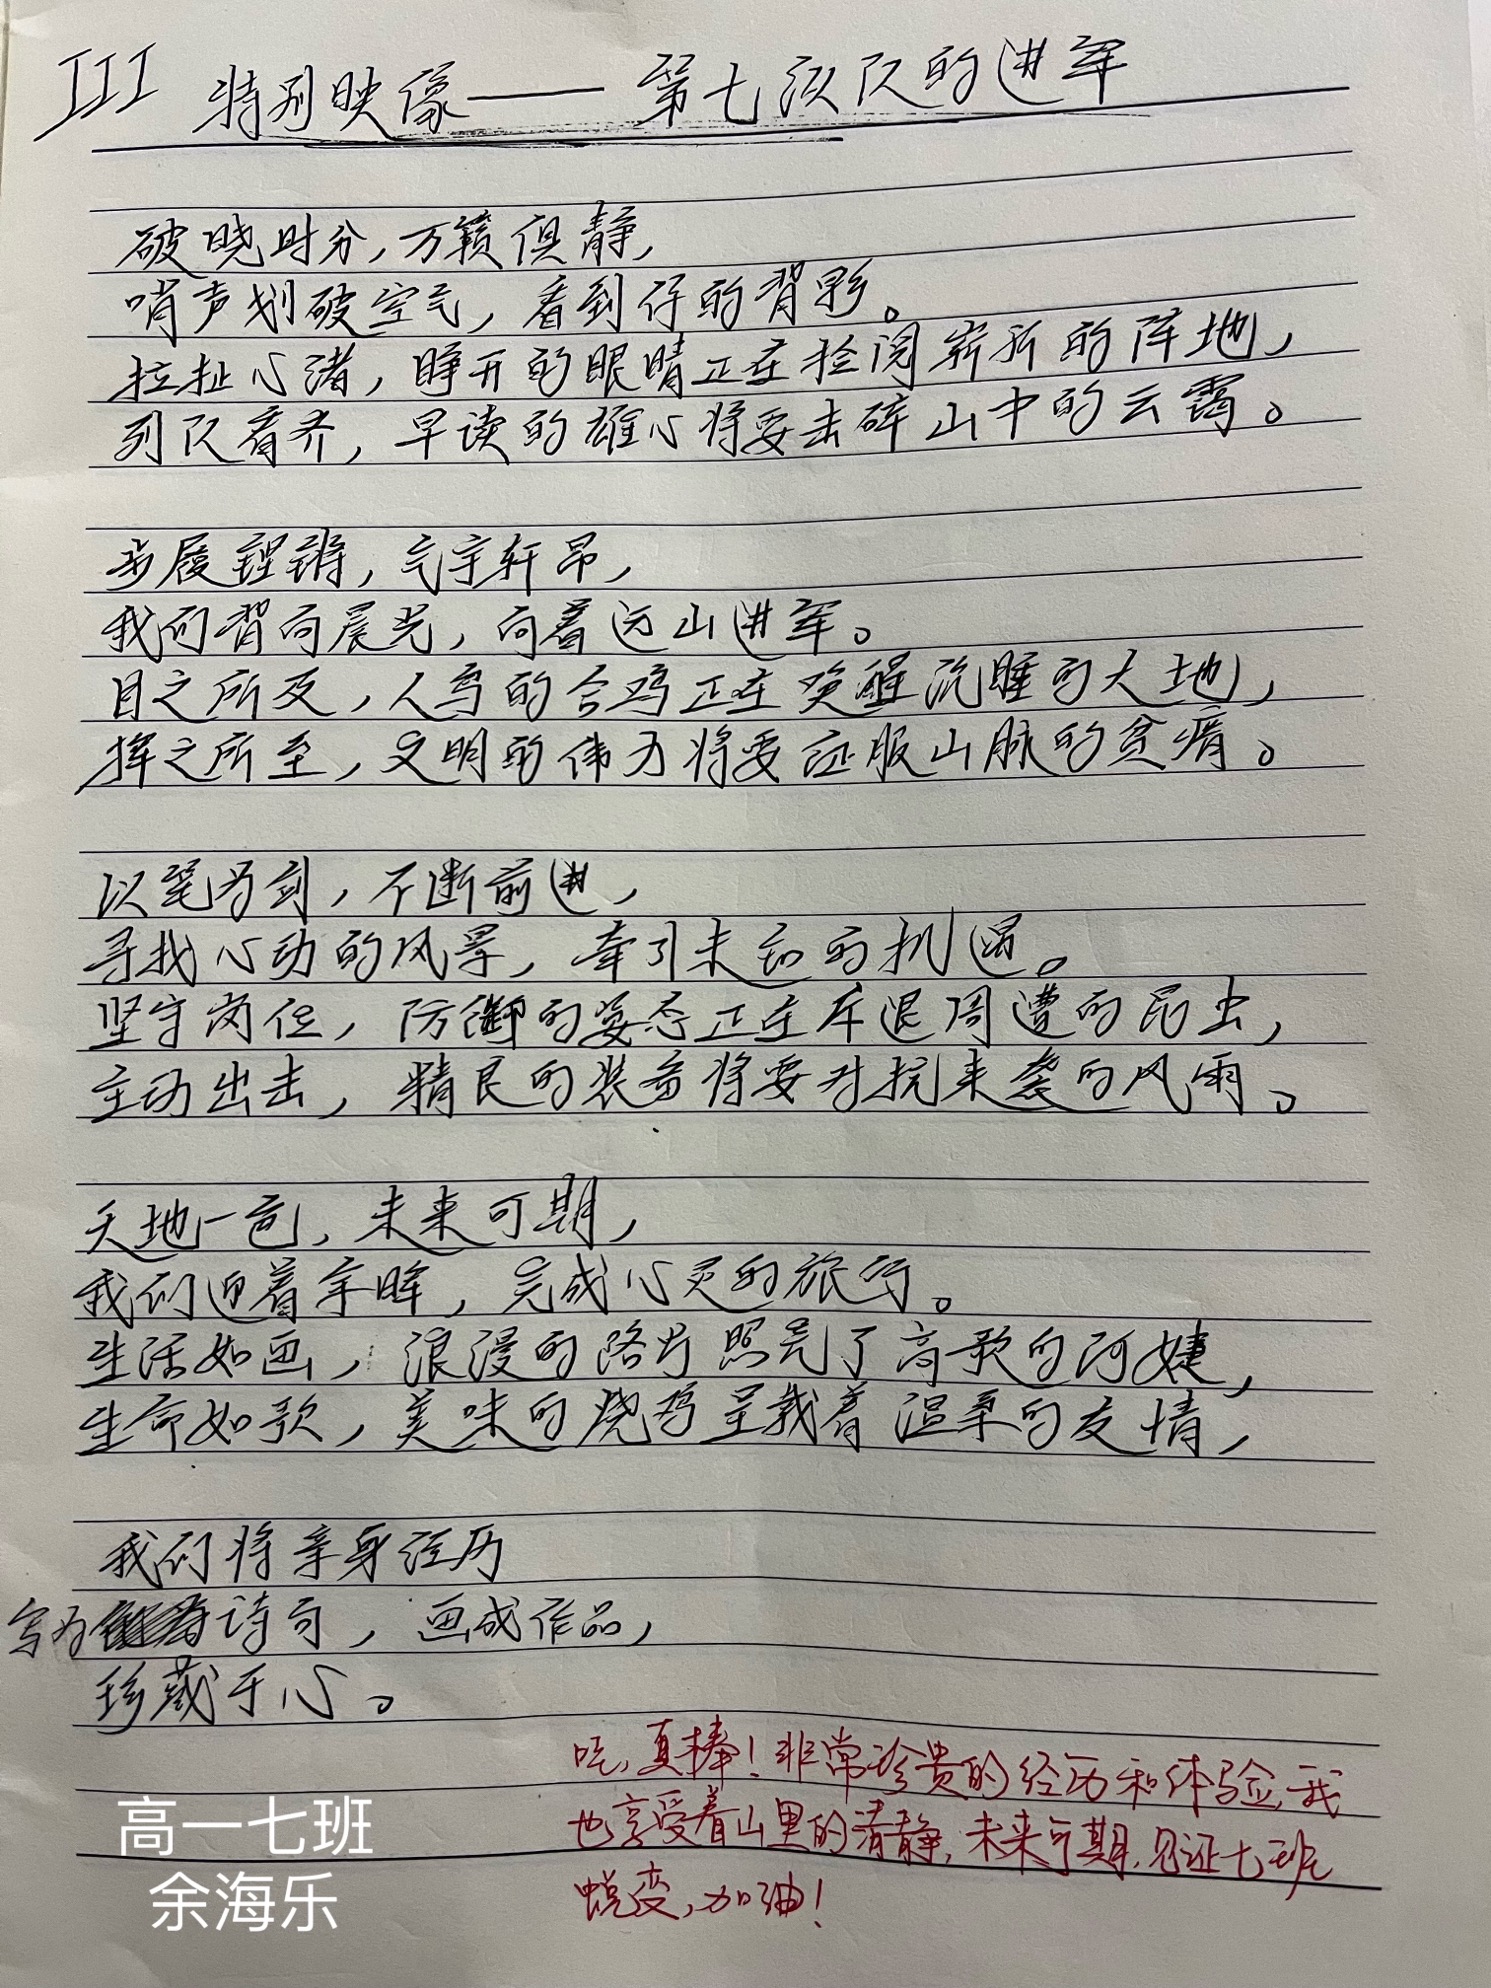 III 特别映像——第七纵队的进军
破晓时分,万籁俱静,
哨声划破空气,看到仔的背影。
拉扯心绪,睁开的眼睛正在检阅崭新的阵地,
列队看齐,早读的雄心将要击碎山中的云霄。
步履铿锵,气宇轩昂,
我们背向晨光,向着远山进军。
目之所及,人鸟的合鸣正在唤醒沉睡的大地,
挥之所至,文明的伟力将要征服山脉的贫瘠。
以笔为剑,不断前进,
寻找心动的风景,牵引未知的机遇。
坚守岗位,防御的姿态正在斥退周遭的昆虫,
主动出击,精良的装备将要对抗来袭的风雨。
天地一色,未来可期,
我们迎着余晖,完成心灵的旅行。
生活如画,浪漫的路灯照亮了高歌的阿婕,
生命如歌,美味的烧鸡呈载着温柔的友情,
我们将亲身经历
写为诗句,画成作品,
珍藏于心。
真棒!非常珍贵的经历和体验,我
也享受着山里的清静,未来可期,见证七班
蜕变,加油!
高一七班
余海乐